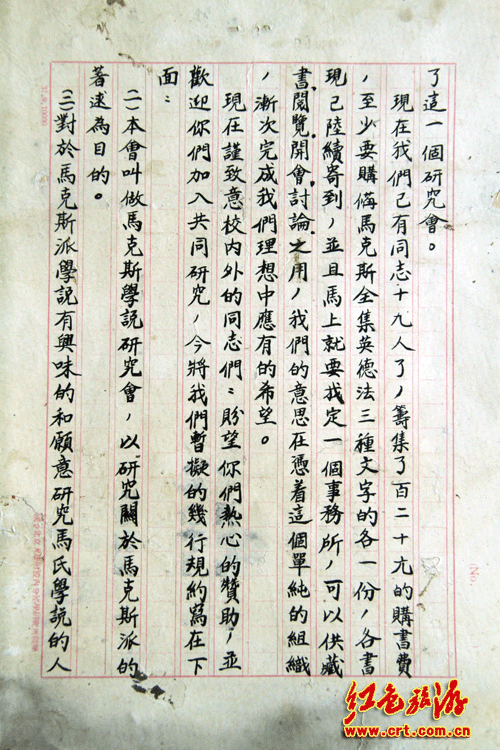 了這一個研究會。
現在我們已有同志十九人了，籌集了百二十元的購書費
，至少要購備馬克斯全集英德法三種文字的各一份，各書
現已陸續寄到，並且馬上就要找定一個事務所，可以供藏
書，閱覽，開會，討論，之用，我們的意思在憑着這個單純的組織
，漸次完成我們理想中應有的希望。
現在謹致意校內外的同志們：盼望你們熱心的贊助，並
歡迎你們加入共同研究，今將我們暫擬的幾行規約寫在下
面：
(一)本會叫做馬克斯學説研究會，以研究關於馬克斯派的
著述為目的。
(二)對於馬克斯派學説有興味的和願意研究馬氏學説的人
(No.
红色旅游
www.crt.com.cn